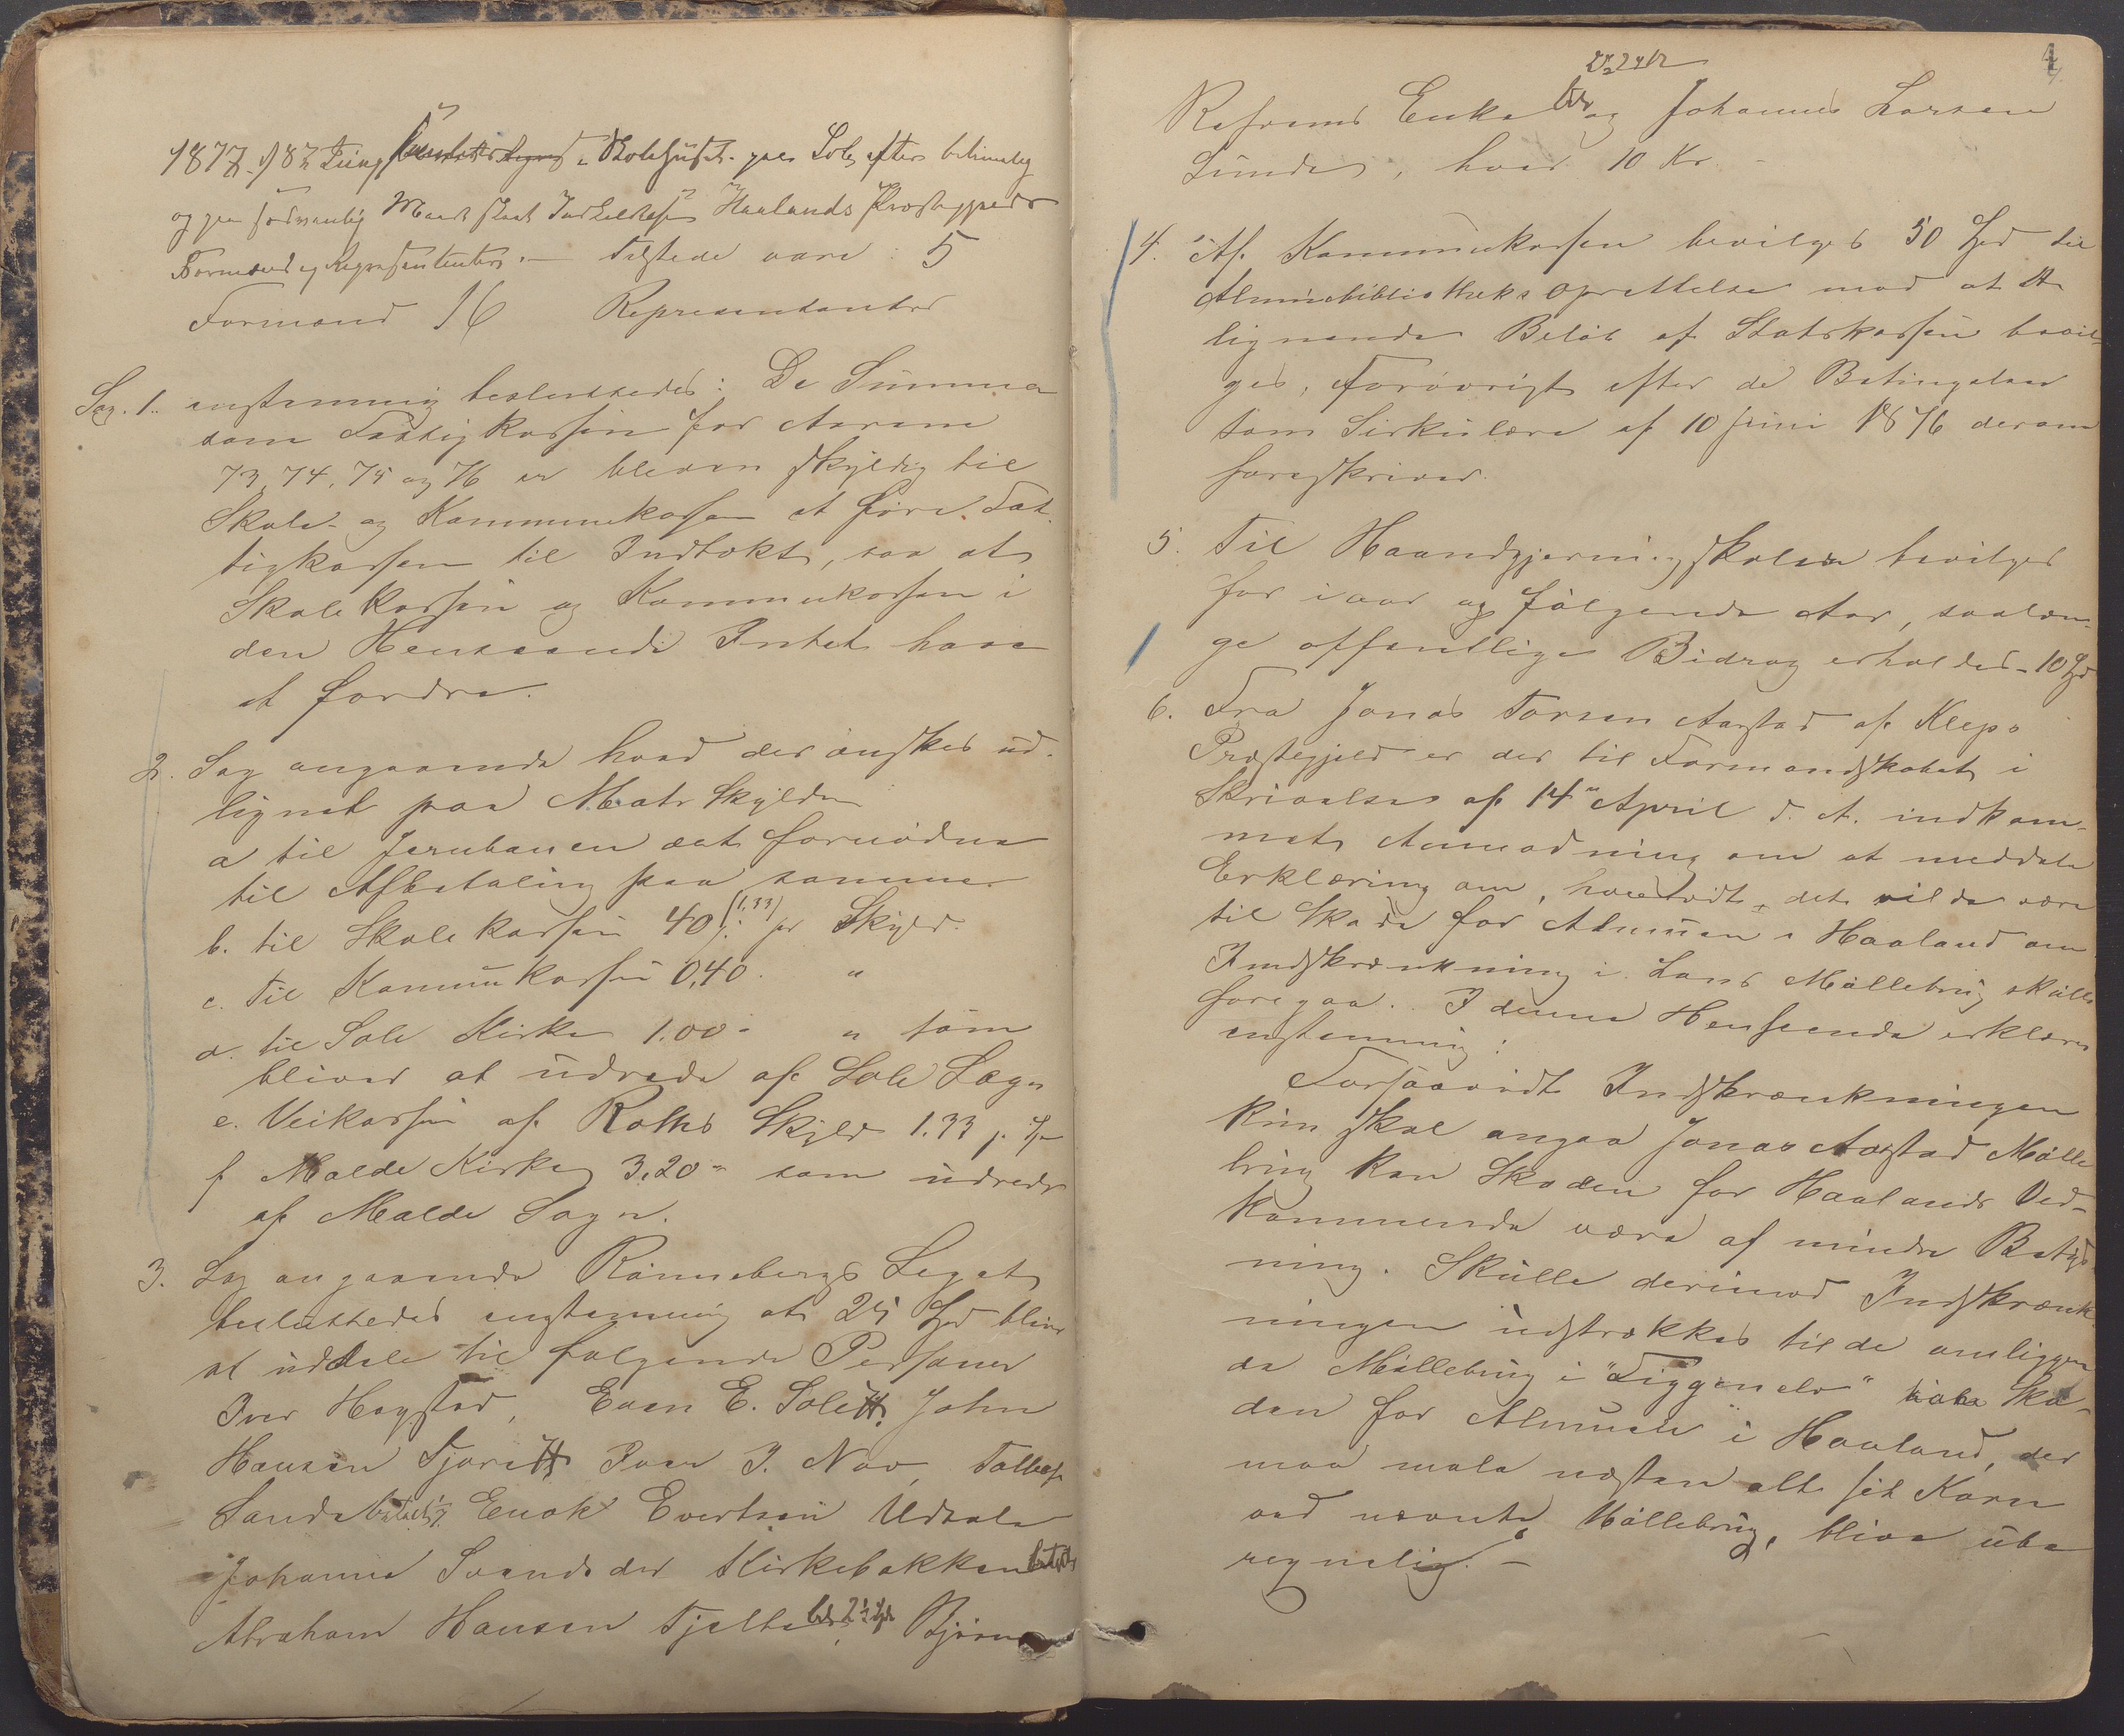 1877 Skolehuset paa Sole efter
og paa Haalands Præstegjelds
Formænd og Repræsentanter. — Tilstede vare 5
Formænd 16 Repræsentanter
Sag. 1. enstemmig besluttedes: De Summer
som Fattigkassen for Aarene
73, 74, 75 og 76 er bleven skyldig til
Skole- og Kommunekassen at føre Fat-
tigkassen til Indtekt, saa at
Skolekassen og Kommunekassen i
den Henseende Intet have
at fordre.
2. Sag angaaende hvad der ønskes ud-
lignet paa Matr Skylden
a til Jernbanen det fornødne
til Afbetaling paa samme
b. til Skolekassen 40 (1,33) pr Skyld.
c. Til Kommunekassen 0,40. "
d. til Sole Kirke 1.00 - " som
bliver at udrede af Sole Sogn
e. Veikassen af Roths Skyld 1.33
f Malde Kirke 3,20 - som udredes
af Malde Sogn.
3. Sag angaaende Rønnebergs Legat
besluttedes enstemmig at 25 Spd bliver
at uddele til følgende Personer
Iver Hogstad, Even E. Sole, John
Hansen Tjora Iver I. Næv, Tollef
Sande betalt Enok Evertsen Utsola
Johanne Svendsdr Kirkebakken betalt
Abraham Hansen Tjelta 2½ Bjørn
4
Refsnes Enke og Johannes Larsen
Sunde, hver 10 Kr. -
4. Af Kommunekassen bevilges 50 Spd til
Almuebibliotheks oprettelse mod at et
lignende Beløb af Statskassen bevil-
ges, Forøvrigt efter de Betingelser
som Sirkulære af 10 Juni 1876 derom
foreskriver.
5. Til Haandgjerningsskolen bevilges
for i aar og følgende Aar, saalæn-
ge offentlige Bidrag erholdes - 10 Spd
6. Fra Jonas Torsen Aarstad af Klepp
Præstegjeld er der til Formandskabet i
Skrivelse af 14 April d. A. indkom-
met Anmodning om at meddele
Erklæring om, hvorvidt det vilde være
til Skade for Almuen i Haaland om
Indskrænkning i Lans Møllebrug skulle
foregaa. I denne Henseende erklæres
enstemmig:
Forsaavidt Indskrænkningen
kun skal angaa Jonas Aarstad Mølle
brug kan Skaden for Haalands Ved-
kommende være af mindre Betyd-
ning. Skulle derimod Indskrænk
ningen udstrækkes til de omliggen
de Møllebrug i "Figgenelv" Ska-
den for Almuen i Haaland, der
maa male næsten alt sit Korn
ved nævnte Møllebrug, blive ube
regnelig. -